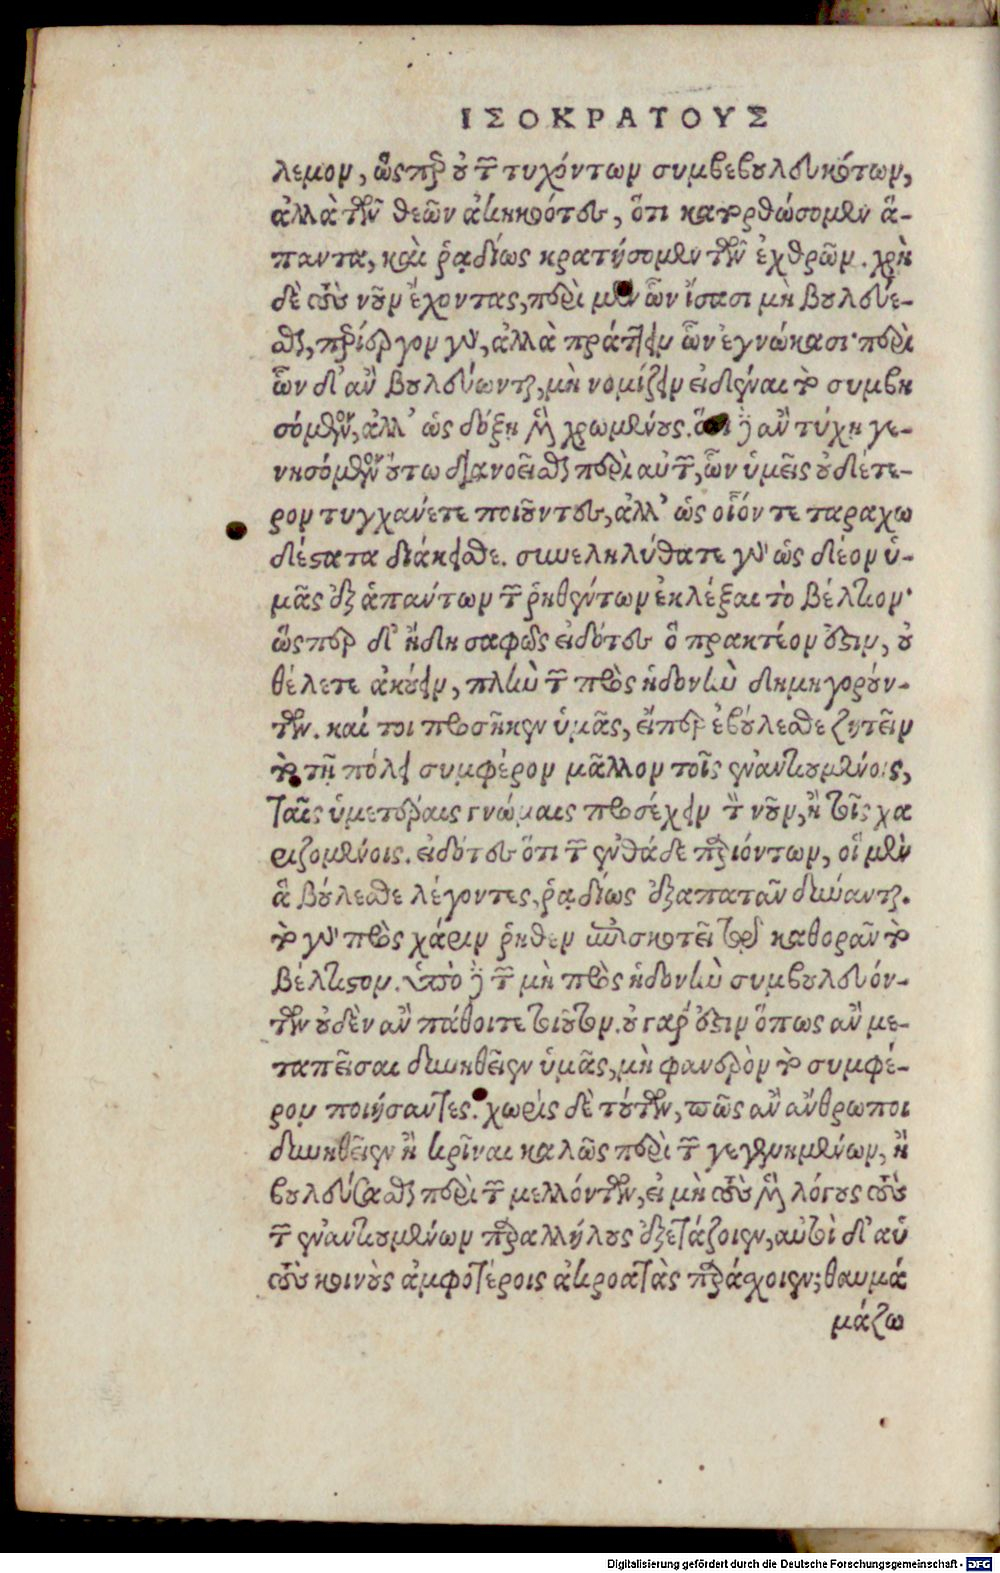 ΙΣΟΚΡΑΤΟΥΣ
λεμον, ὥσπερ οὐ τῶν τυχόντων συμβεβουλευκότων,
ἀλλὰ τῶν θεῶν ἀκηκοότες, ὅτι κατορθώσομεν ἅ-
παντα, καὶ ῥᾳδίως κρατήσομεν τῶν ἐχθρῶν. χρὴ
δὲ τοὺς νοῦν ἔχοντας, περὶ μὲν ὧν ἴσασι μὴ βουλεύε-
σθαι, περίεργον γὰρ, ἀλλὰ πράττειν ὧν ἐγνώκασι· περὶ
ὧν δ' ἂν βουλεύωνται, μὴ νομίζειν εἰδέναι τὸ συμβη
σόμενον, ἀλλ' ὡς δόξῃ μὲν χρωμένους. ὅτι δὲ ἂν τύχῃ γε-
νησόμενον οὕτω διανοεῖσθαι περὶ αὐτῶν, ὧν ὑμεῖς οὐδέτε-
ρον τυγχάνετε ποιοῦντες, ἀλλ' ὡς οἷόν τε ταραχω
δέστατα διάκεισθε. συνεληλύθατε γὰρ ὡς δέον ὑ-
μᾶς ἐξ ἁπάντων τῶν ῥηθέντων ἐκλέξαι τὸ βέλτιον·
ὥσπερ δ' ἤδη σαφῶς εἰδότες ὃ πρακτέον ἐστιν, οὐ
θέλετε ἀκούειν, πλὴν τῶν πρὸς ἡδονὴν δημηγορούν-
των. καί τοι προσῆκεν ὑμᾶς, εἴπερ ἐβούλεσθε ζητεῖν
τὸ τῇ πόλει συμφέρον μᾶλλον τοῖς ἐναντιουμένοις,
ταῖς ὑμετέραις γνώμαις προσέχειν τὸν νοῦν, ἢ τοῖς χα
ριζομένοις. εἰδότες ὅτι τῶν ἐνθάδε παριόντων, οἱ μὲν
ἃ βούλεσθε λέγοντες, ῥᾳδίως ἐξαπατᾶν δύνανται.
τὸ γὰρ πρὸς χάριν ῥηθεν ἐπισκοτεῖ τοῦ καθορᾶν τὸ
βέλτιστον. ὑπὸ δὲ τῶν μὴ πρὸς ἡδονὴν συμβουλευόν-
των οὐδὲν ἂν πάθοιτε τοιοῦτον. οὐ γάρ ἐστιν ὅπως ἂν με-
ταπεῖσαι δυνηθεῖεν ὑμᾶς, μὴ φανερὸν τὸ συμφέ-
ρον ποιήσαντες. χωρὶς δὲ τούτων, πῶς ἂν ἄνθρωποι
δυνηθεῖεν ἢ κρῖναι καλῶς περὶ τῶν γεγενημένων, ἢ
βουλεύσασθαι περὶ τῶν μελλόντων, εἰ μὴ τοὺς μὲν λόγους τοὺς
τῶν ἐναντιουμένων παρ' ἀλλήλους ἐξετάζοιεν, αὐτοὶ δ' αὑ
τοὺς κοινοὺς ἀμφοτέροις ἀκροατὰς παράσχοιεν; θαυμά
μάζω
Digitalisierung gefördert durch die Deutsche Forschungsgemeinschaft - DFG